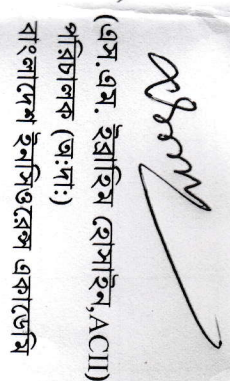 (এস.এম. ইব্রাহিম হোসাইন,ACII)
পরিচালক (অ:দা:)
বাংলাদেশ ইনসিওরেন্স একাডেমি